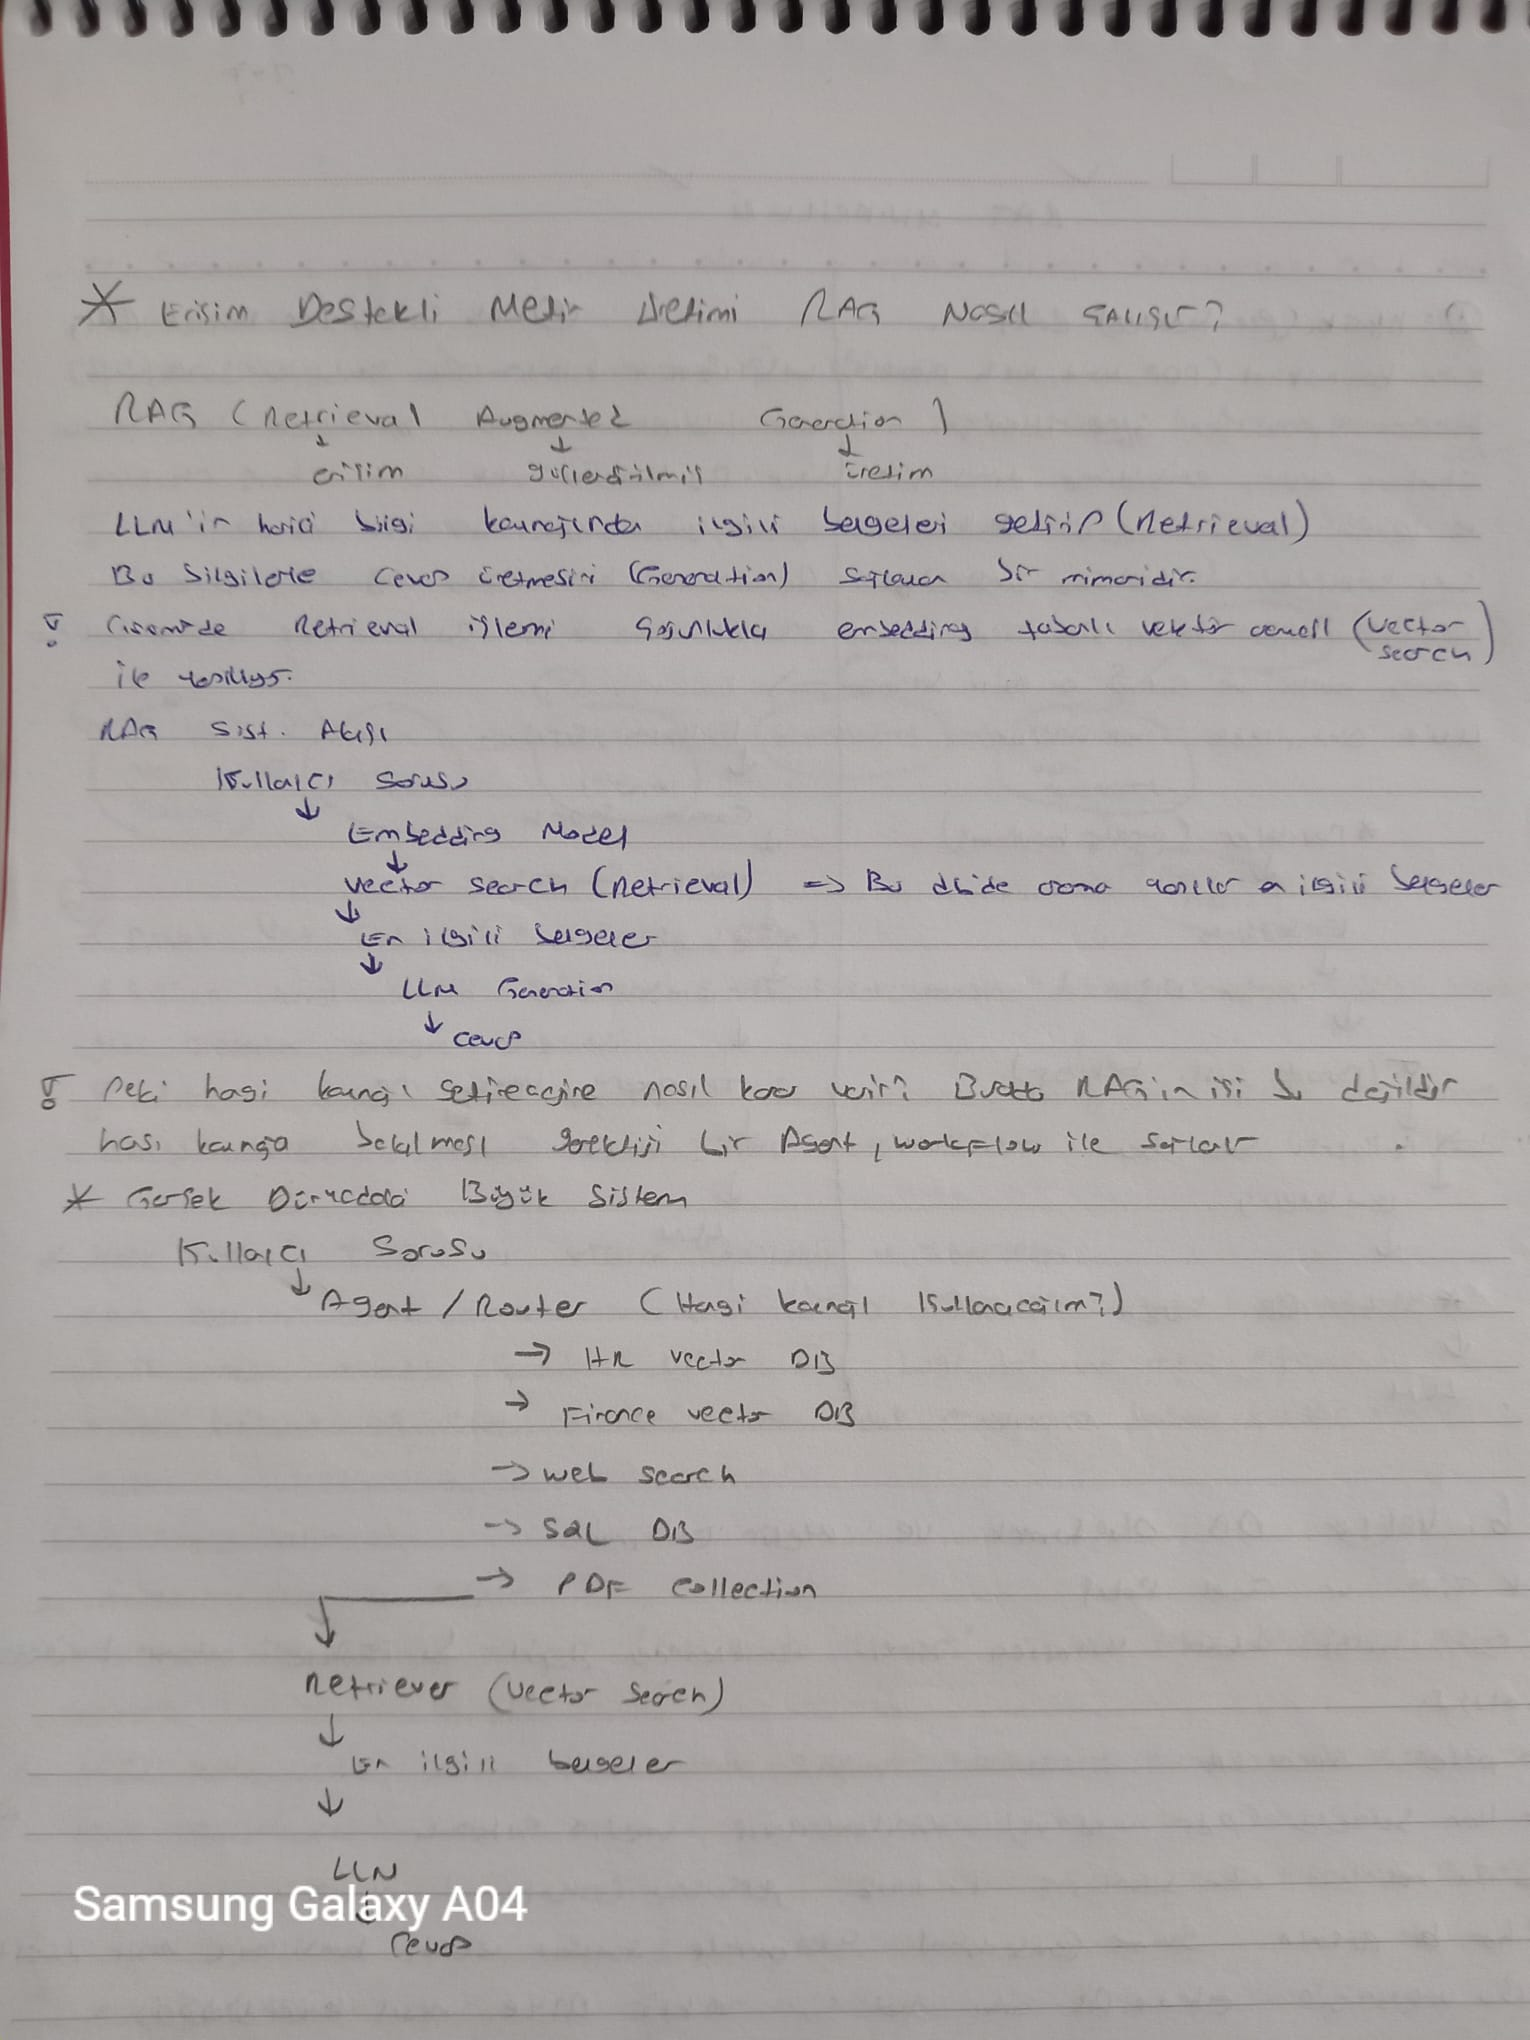 * Erişim Destekli Metin Üretimi RAG Nasıl Çalışır?
RAG (Retrieval Augmented Generation)
↓ ↓ ↓
erişim güçlendirilmiş üretim
LLM'in harici bilgi kaynağından ilgili belgeleri getirip (Retrieval)
Bu bilgilerle cevap üretmesini (Generation) sağlayan bir mimaridir.
! Günümüzde Retrieval işlemi çoğunlukla embedding tabanlı vektör araması (vector search)
ile yapılıyor.
RAG Sist. Akışı
Kullanıcı Sorusu
↓
Embedding Model
↓
Vector Search (Retrieval) => Bu db'de arama yapılır en ilgili belgeler
↓
En ilgili belgeler
↓
LLM Generation
↓ Cevap
! Peki hangi kaynağı getireceğine nasıl karar verir? Burada RAG'in işi bu değildir
hangi kaynağa bakılması gerektiği bir Agent, workflow ile sağlanır.
* Gerçek Dünyadaki Büyük Sistem
Kullanıcı Sorusu
↓
Agent / Router (Hangi kaynağı kullanacağım?)
→ HR vector DB
→ Finance vector DB
→ web search
→ SQL DB
→ PDF Collection
↓
Retriever (Vector Search)
↓
En ilgili belgeler
↓
LLM
↓
Cevap
Samsung Galaxy A04